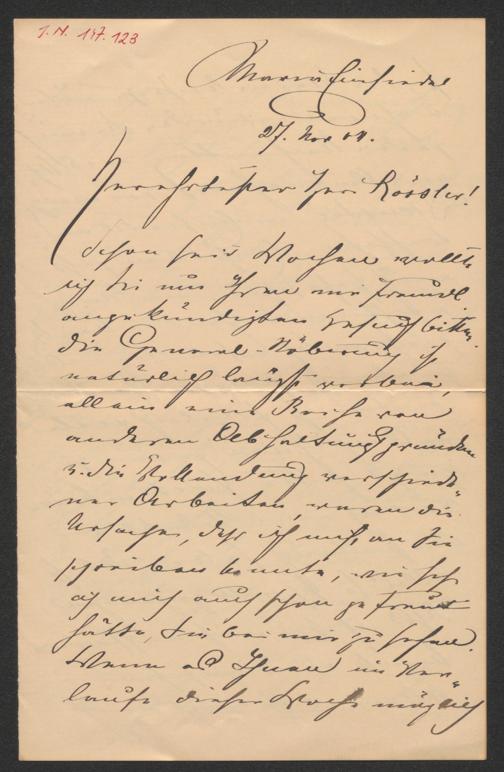 J. N. 147.123
Maria Einsiedel
27. Nov 04.
Verehrtester Herr Rössler!
Schon seit Wochen wollte
ich Sie um Ihren mir freundl
angekündigten Besuch bitten.
die General-Säuberung ist
natürlich längst vorbei,
allein eine Reihe von
anderen Abhaltungsgründen
u. die Vollendung verschied"
ner Arbeiten, waren die
Ursache, daß ich nicht an Sie
schreiben konnte, wie sehr
es mich auch schon gefreut
hätte, Sie bei mir zu sehen.
Wenn es Ihnen im Ver"
laufe dieser Woche möglich